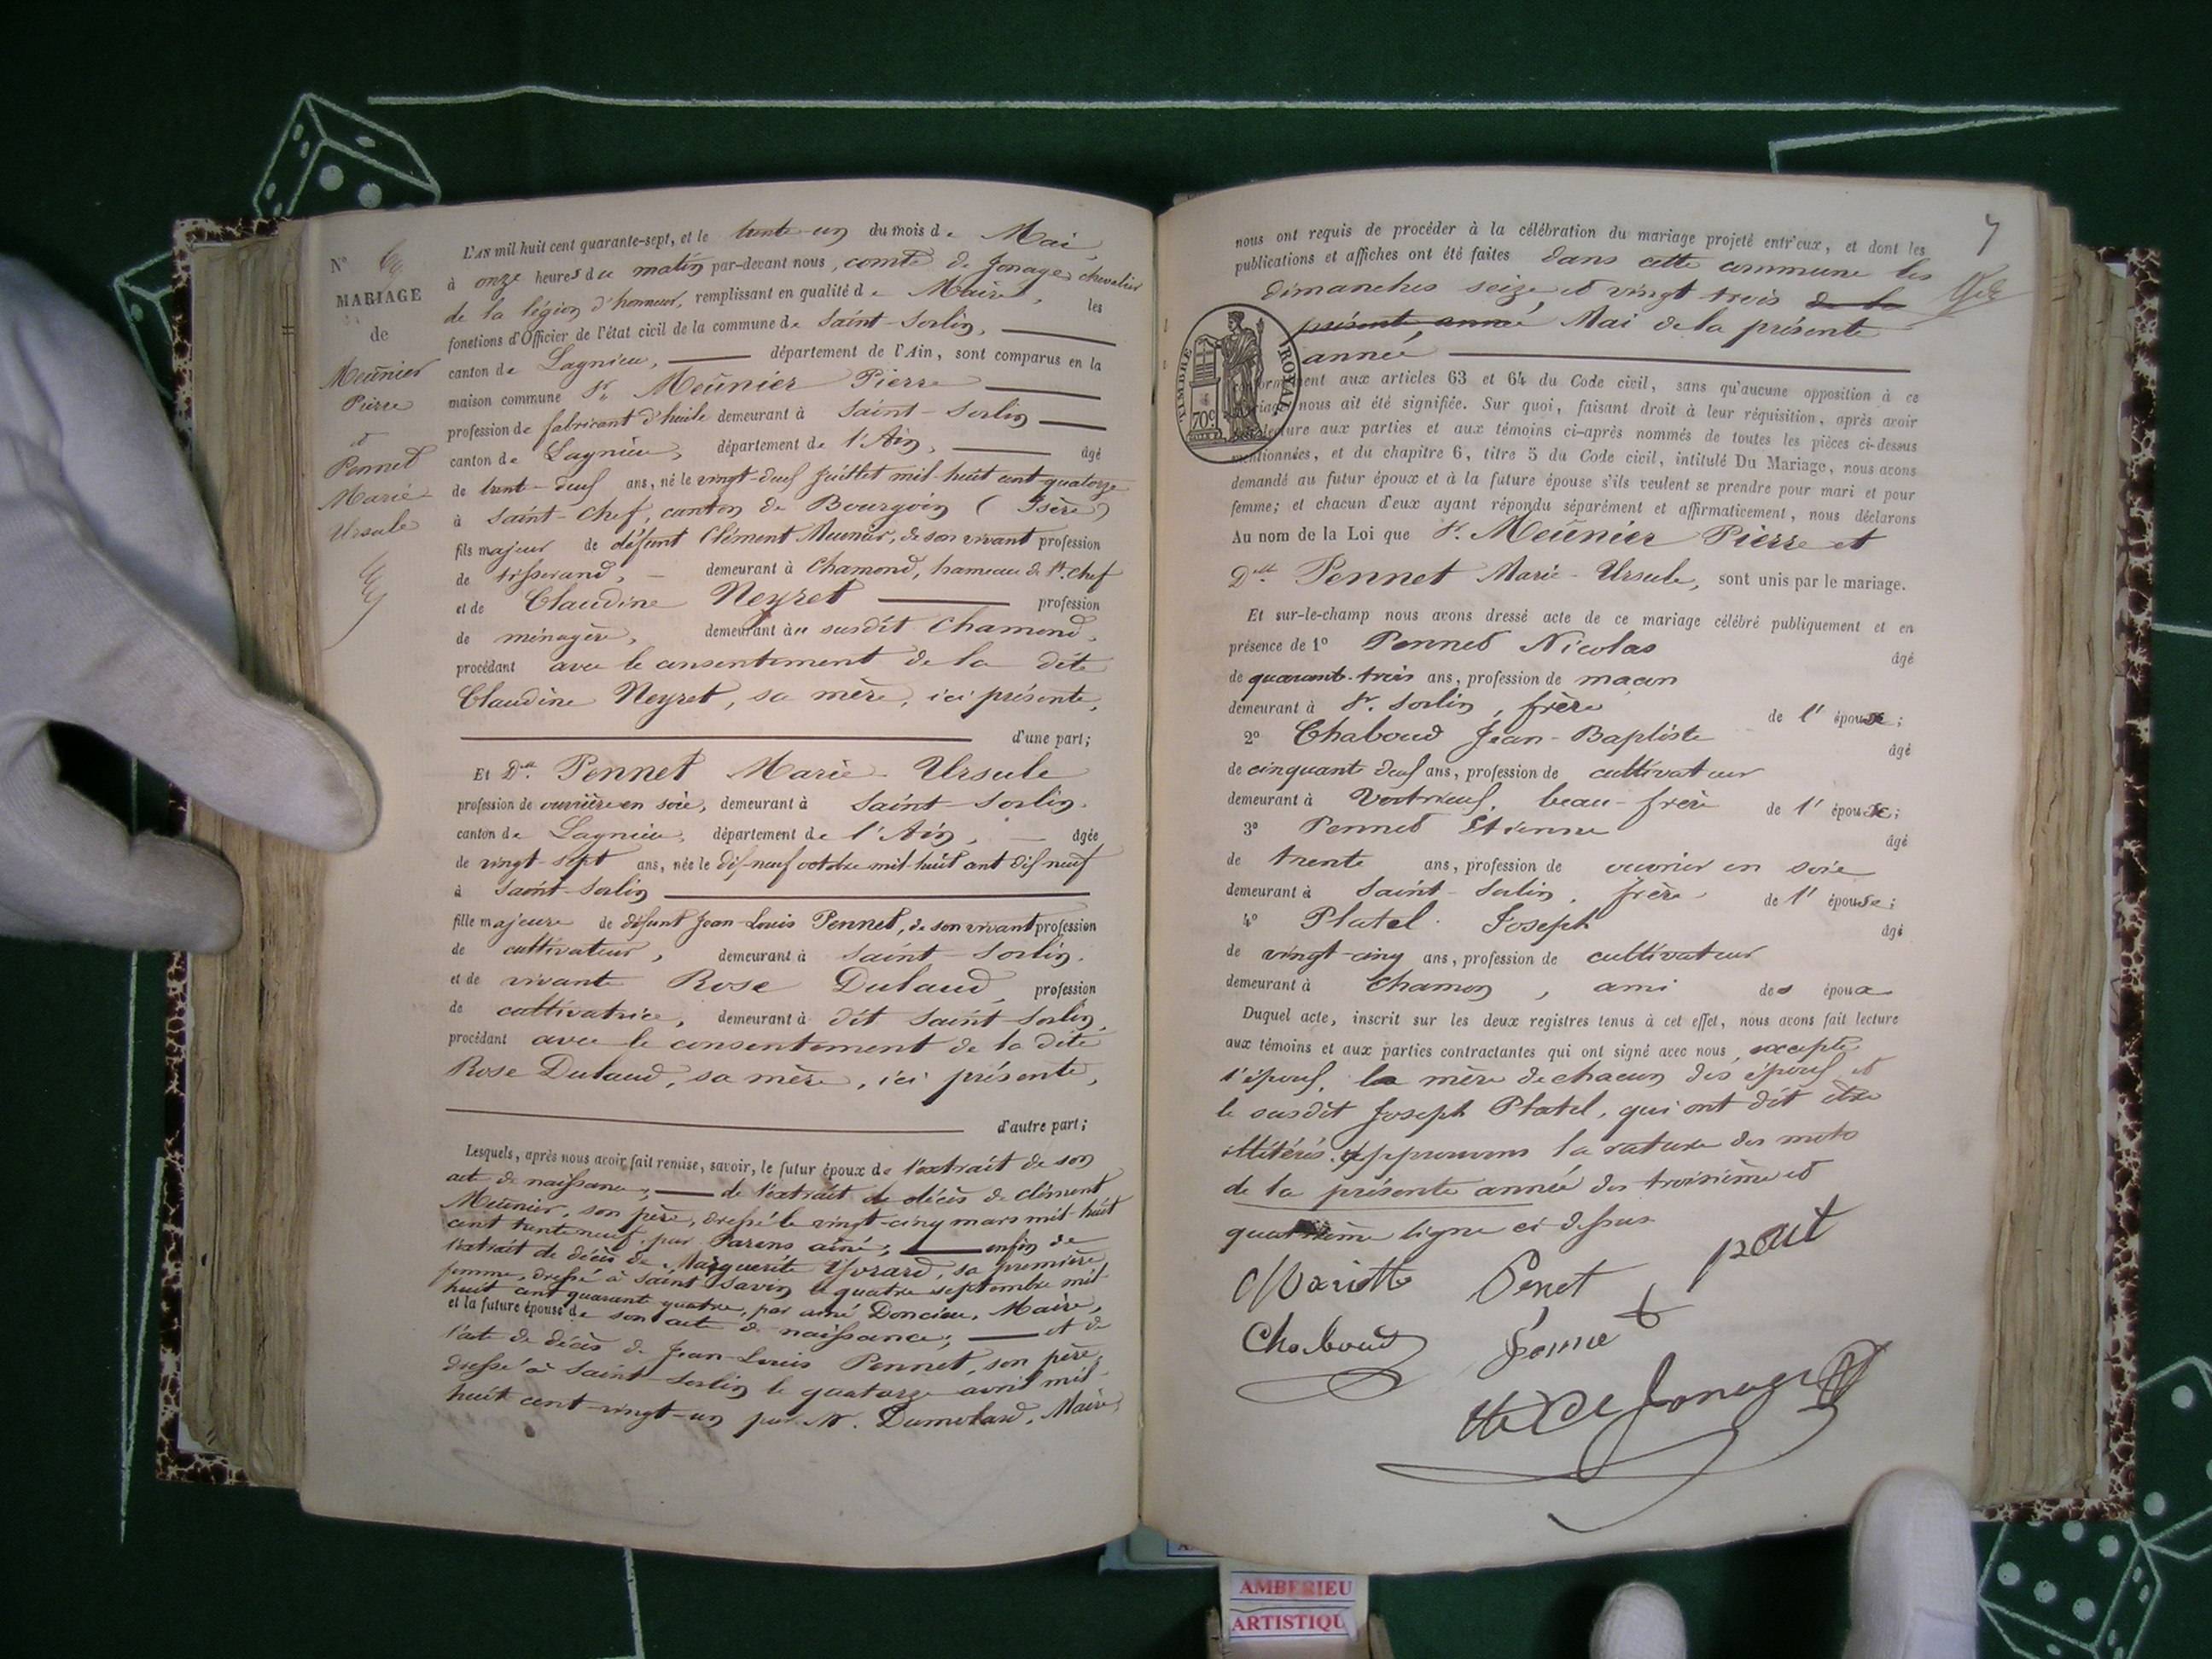 N° 
MARIAGE
de
Meünier
Pierre
et
Pennet
Marie
Ursule
L'AN mil huit cent quarante-sept, et le trente-un du mois de Mai,
à onze heures du matin par-devant nous, comte de Jonage, chevalier
de la légion d'honneur, remplissant en qualité de Maire, les
fonctions d'Officier de l'état civil de la commune de Saint-Sorlin,
canton de Lagnieu, département de l'Ain, sont comparus en la
maison commune Sr. Meünier Pierre
profession de fabricant d'huile demeurant à Saint-Sorlin
canton de Lagnieu, département de l'Ain, âgé
de trente-deux ans, né le vingt-deux juillet mil-huit cent-quatorze
à Saint-Chef, canton de Bourgoin (Isère)
fils majeur de défunt Clément Meunier, de son vivant profession
de tisserand, demeurant à Chamond, hameau de St. Chef
et de Claudine Neyret profession
de ménagère, demeurant au susdit Chamond,
procédant avec le consentement de la dite
Claudine Neyret, sa mère, ici présente,
d'une part;
Et Dlle. Pennet Marie-Ursule
profession de ouvrière en soie, demeurant à Saint-Sorlin,
canton de Lagnieu, département de l'Ain, âgée
de vingt-sept ans, née le dix-neuf octobre mil-huit cent dix neuf
à Saint-Sorlin
fille majeure de défunt Jean-Louis Pennet, de son vivant profession
de cultivateur, demeurant à Saint-Sorlin,
et de vivante Rose Dulaud, profession
de cultivatrice, demeurant à dit Saint-Sorlin,
procédant avec le consentement de la dite
Rose Dulaud, sa mère, ici présente,
d'autre part;
Lesquels, après nous avoir fait remise, savoir, le futur époux de l'extrait de son
acte de naissance; de l'extrait de décès de Clément
Meünier, son père, dressé le vingt-cinq mars mil-huit
cent trente neuf, par Parens aîné; enfin de
l'extrait de décès de Marguerite, sa première
femme, dressé à Saint Savin le quatre septembre mil-
huit cent quarante quatre, par aîné Doncieu, Maire,
et la future épouse de son acte de naissance; et de
l'acte de décès de Jean-Louis Pennet, son père,
dressé à Saint-Sorlin le quatorze avril mil-
huit cent-vingt-un par M. Dumolard, Maire,
7
nous ont requis de procéder à la célébration du mariage projeté entr'eux, et dont les
publications et affiches ont été faites dans cette commune les
dimanches seize et vingt trois de la
présente année Mai de la présente
année
TIMBRE ROYAL
70c
conformément aux articles 63 et 64 du Code civil, sans qu'aucune opposition à ce
mariage nous ait été signifiée. Sur quoi, faisant droit à leur réquisition, après avoir
lecture aux parties et aux témoins ci-après nommés de toutes les pièces ci-dessus
mentionnées, et du chapitre 6, titre 5 du Code civil, intitulé Du Mariage, nous avons
demandé au futur époux et à la future épouse s'ils veulent se prendre pour mari et pour
femme; et chacun d'eux ayant répondu séparément et affirmativement, nous déclarons
Au nom de la Loi que Sr. Meünier Pierre et
Dlle. Pennet Marie-Ursule, sont unis par le mariage.
Et sur-le-champ nous avons dressé acte de ce mariage célébré publiquement et en
présence de 1° Pennet Nicolas âgé
de quarante-trois ans, profession de maçon
demeurant à St. Sorlin, frère de l'épouse;
2° Chaboud Jean-Baptiste âgé
de cinquante deux ans, profession de cultivateur
demeurant à Vertrieux, beau-frère de l'épouse;
3° Pennet Etienne âgé
de trente ans, profession de ouvrier en soie
demeurant à Saint-Sorlin, frère de l'épouse;
4° Platel Joseph âgé
de vingt-cinq ans, profession de cultivateur
demeurant à Chamon, ami des époux
Duquel acte, inscrit sur les deux registres tenus à cet effet, nous avons fait lecture
aux témoins et aux parties contractantes qui ont signé avec nous, excepté
l'époux, la mère de chacun des époux et
le susdit Joseph Platel, qui ont dit être
illitérés. Approuvons la rature des mots
de la présente année des troisième et
quatrième ligne ci dessus
Penet
Chaboud
de Jonage
AMBERIEU
ARTISTIQU